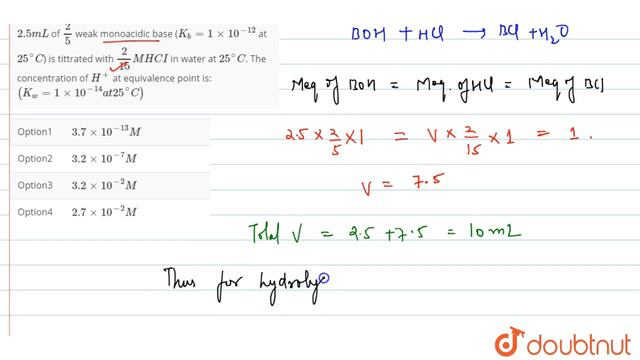 2.5mL of 2/5 weak monoacidic base (K_b = 1 × 10^-12 at
25°C) is tittrated with 2/15 MHCI in water at 25°C. The
concentration of H^+ at equivalence point is:
(K_w = 1 × 10^-14 at25°C)
Option1 3.7 × 10^-13 M
Option2 3.2 × 10^-7 M
Option3 3.2 × 10^-2 M
Option4 2.7 × 10^-2 M
BOH + HCl → BCl + H2O
Meq of BOH = Meq. of HCl = Meq of BCl
2.5 × 2/5 × 1 = V × 2/15 × 1 = 1.
V = 7.5
Total V = 2.5 + 7.5 = 10 mL
Thus for hydroly
doubtnut